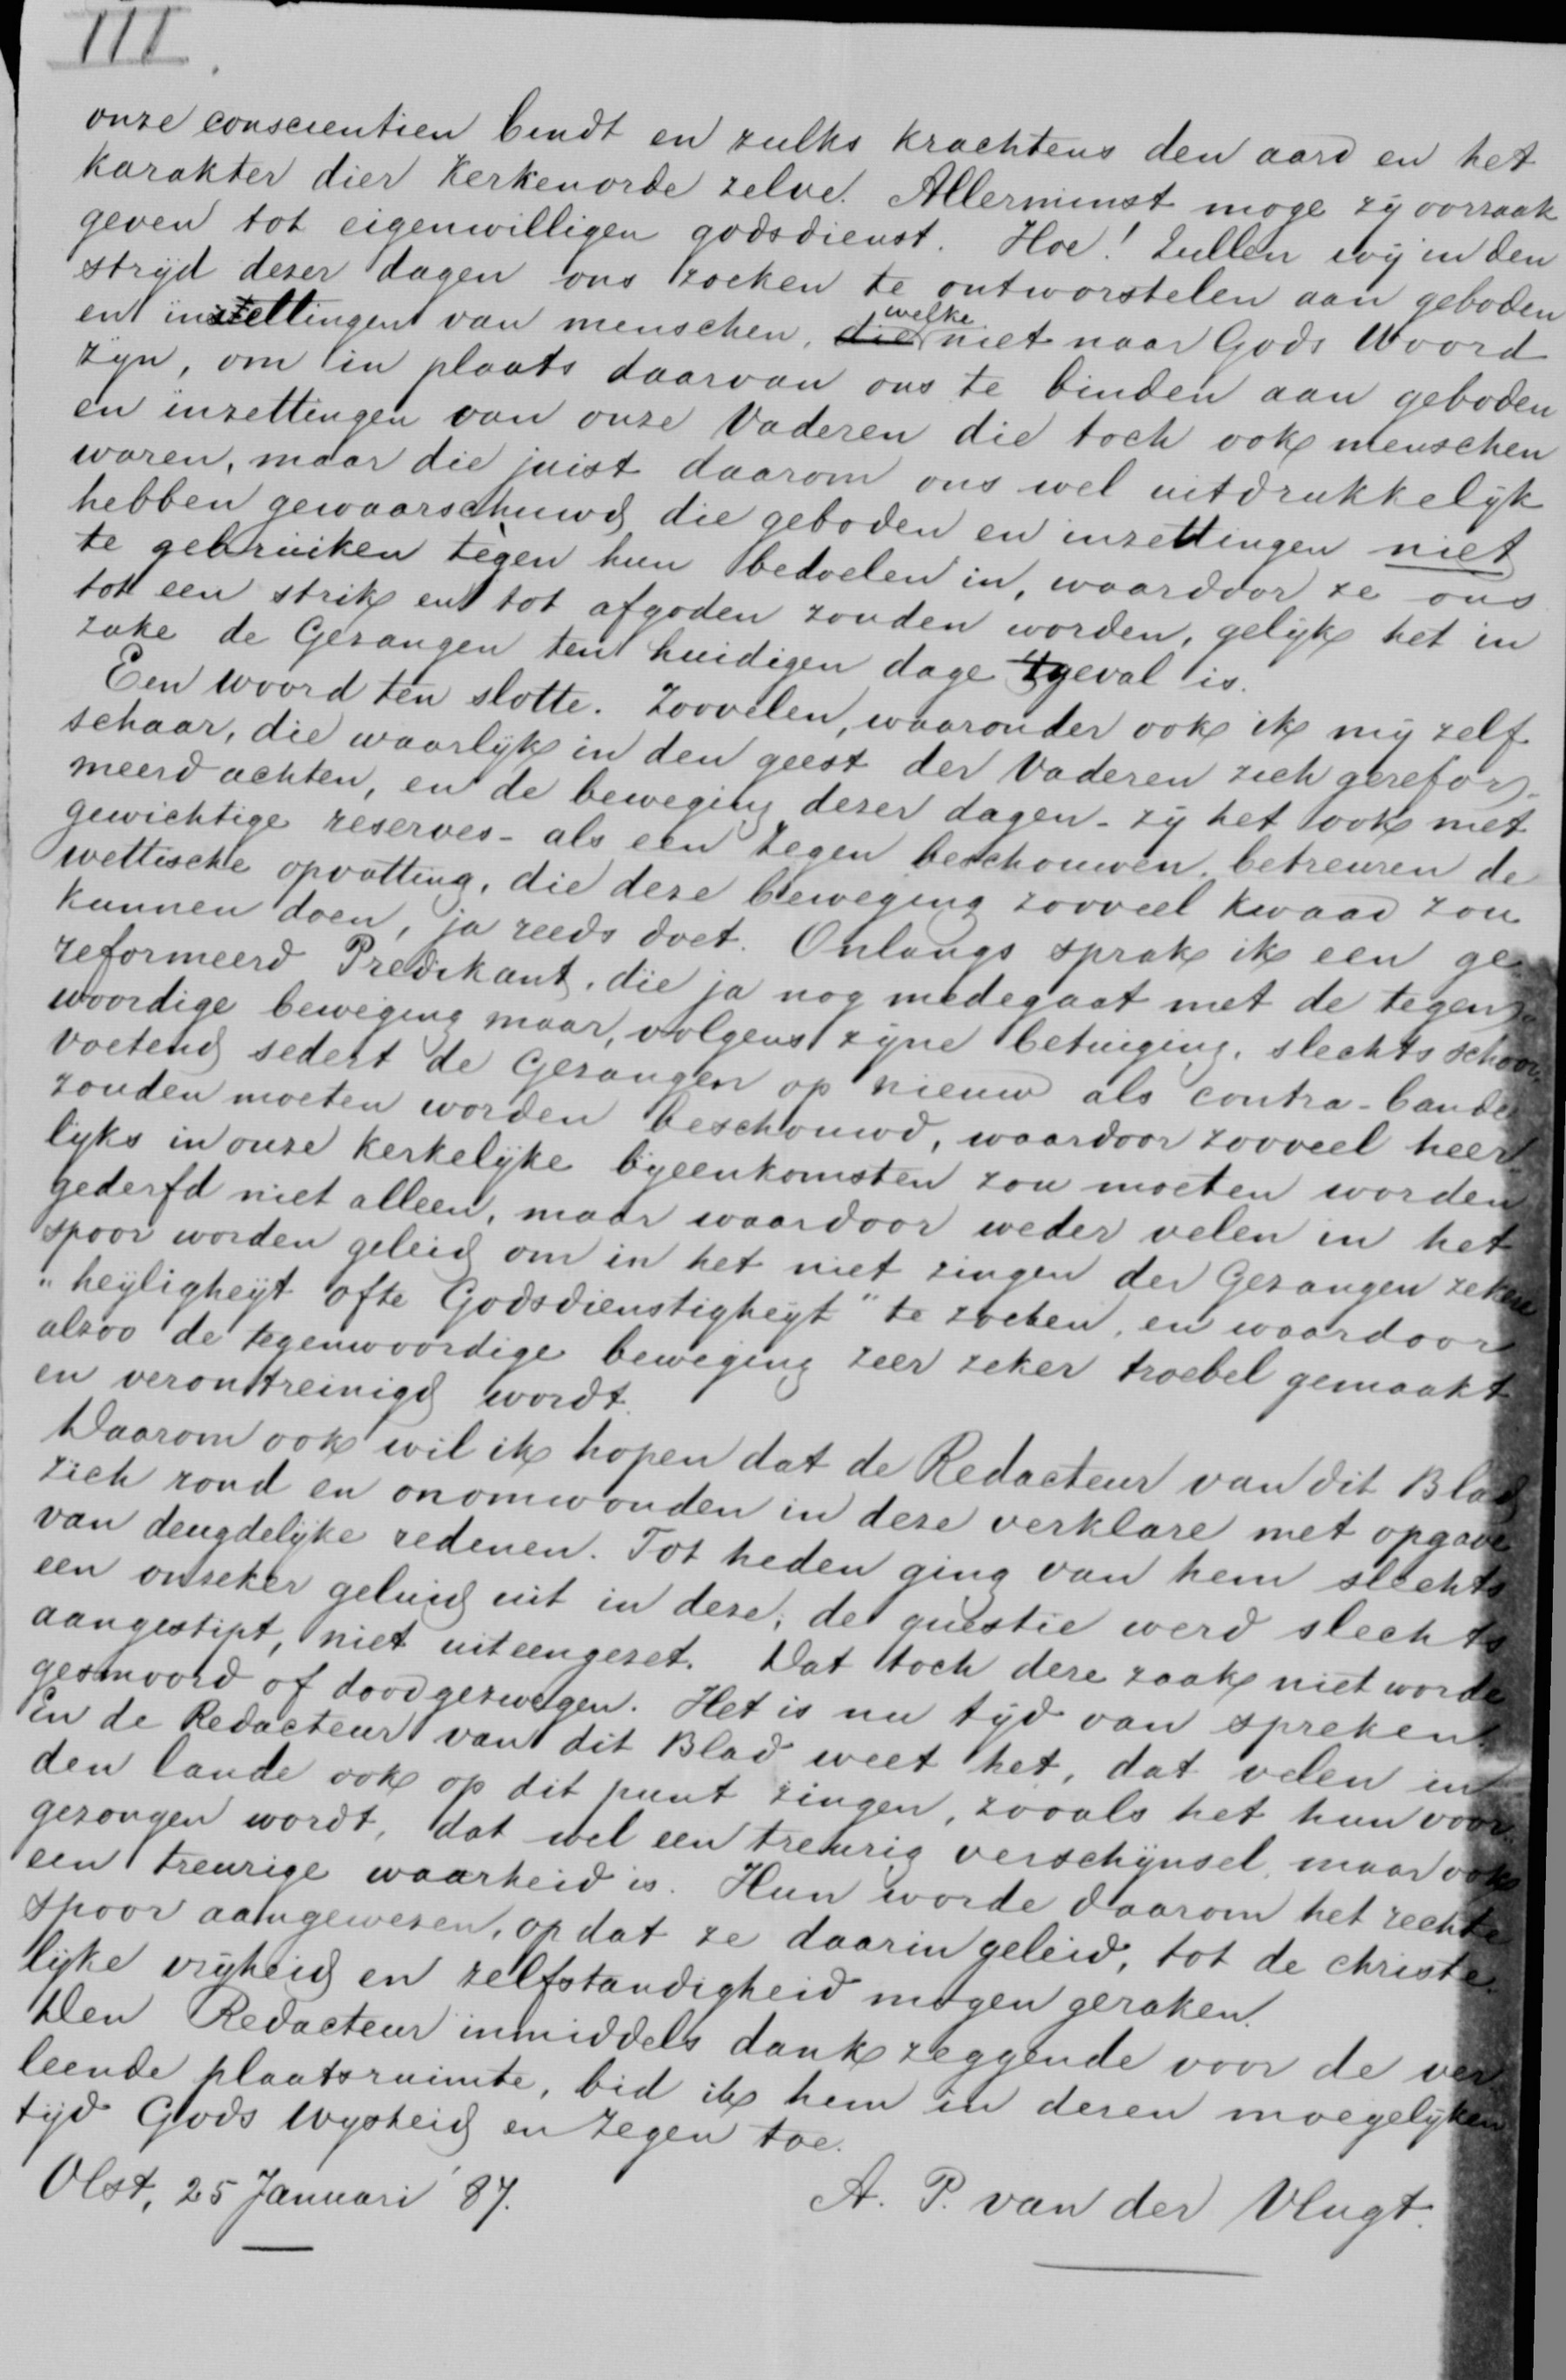 III.
onze conscientien bindt en zulks krachtens den aard en het
karakter dier Kerkenorde zelve. Allerminst moge zy oorzaak
geven tot eigenwilligen godsdienst. Hoe! Zullen wy in den
stryd dezer dagen ons zoeken te ontworstelen aan geboden
en instellingen van menschen, die welke niet naar Gods Woord
zyn, om in plaats daarvan ons te binden aan geboden
en inzettingen van onze Vaderen die toch ook menschen
waren, maar die juist daarom ons wel uitdrukkelyk
hebben gewaarschuwd die geboden en inzettingen niet
te gebruiken tègen hun bedoelen in, waardoor ze ons
tot een strik en tot afgoden zouden worden, gelyk het in
zake de Gezangen ten huidigen dage 't geval is.
Een woord ten slotte. Zoovelen, waaronder ook ik my zelf
schaar, die waarlyk in den geest der Vaderen zich gerefor-
meerd achten, en de beweging dezer dagen - zy het ook met
gewichtige reserves - als een zegen beschouwen, betreuren de
wettische opvatting, die deze beweging zooveel kwaad zou
kunnen doen, ja reeds doet. Onlangs sprak ik een ge-
reformeerd Predikant, die ja nog medegaat met de tegen-
woordige beweging maar, volgens zyne betuiging, slechts schoor-
voetend sedert de Gezangen op nieuw als contra-bande
zouden moeten worden beschouwd, waardoor zooveel heer-
lyks in onze kerkelyke byeenkomsten zou moeten worden
gederfd niet alleen, maar waardoor weder velen in het
spoor worden geleid om in het niet zingen der Gezangen zekere
"heyligheyt ofte Godsdienstigheyt" te zoeken, en waardoor
alzoo de tegenwoordige beweging zeer zeker troebel gemaakt
en verontreinigd wordt.
Daarom ook wil ik hopen dat de Redacteur van dit Blad
zich rond en onomwonden in deze verklare met opgave
van deugdelyke redenen. Tot heden ging van hem slechts
een onzeker geluid uit in deze; de questie werd slechts
aangestipt, niet uiteengezet. Dat toch deze zaak niet worde
gesmoord of doodgezwegen. Het is nu tyd van spreken.
En de Redacteur van dit Blad weet het, dat velen in
den lande ook op dit punt zingen, zooals het hun voor-
gezongen wordt, dat wel een treurig verschynsel, maar ook
een treurige waarheid is. Hun worde daarom het rechte
spoor aangewezen, opdat ze daarin geleid, tot de christe-
lyke vryheid en zelfstandigheid mogen geraken.
Den Redacteur inmiddels dank zeggende voor de ver-
leende plaatsruimte, bid ik hem in dezen moegelyken
tyd Gods Wysheid en zegen toe.
Olst, 25 Januari '87.
A. P. van der Vlugt.